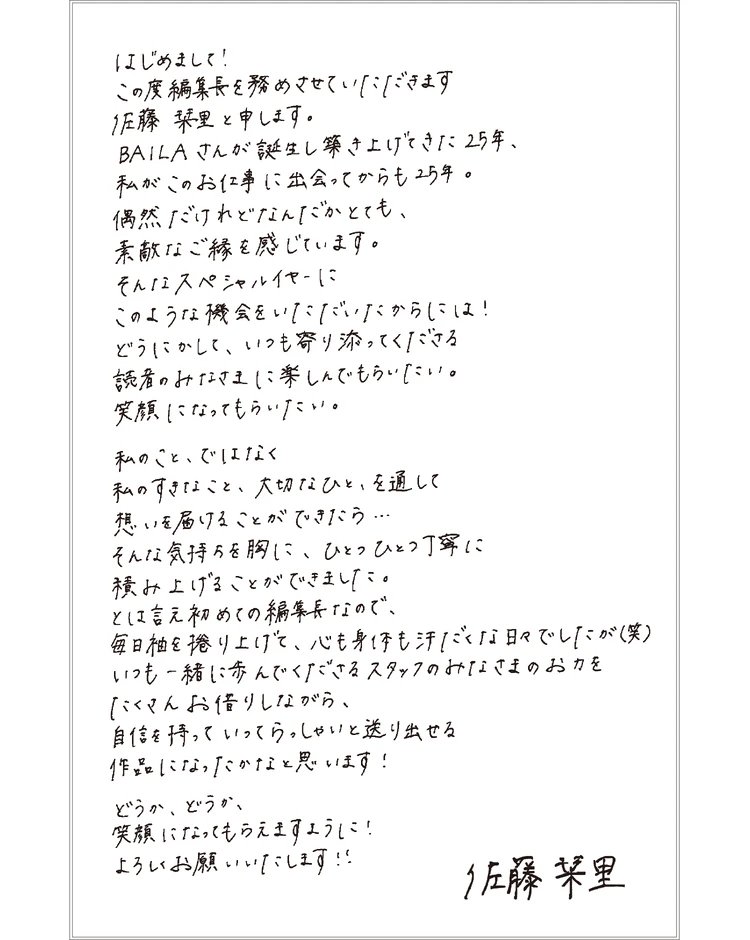 はじめまして!
この度編集長を務めさせていただきます
佐藤 栞里と申します。
BAILAさんが誕生し築き上げてきた25年、
私がこのお仕事に出会ってからも25年。
偶然だけれどなんだかとても、
素敵なご縁を感じています。
そんなスペシャルイヤーに
このような機会をいただいたからには!
どうにかして、いつも寄り添ってくださる
読者のみなさまに楽しんでもらいたい。
笑顔になってもらいたい。
私のこと、ではなく
私のすきなこと、大切なひと、を通して
想いを届けることができたら…
そんな気持ちを胸に、ひとつひとつ丁寧に
積み上げることができました。
とは言え初めての編集長なので、
毎日袖を捲り上げて、心も身体も汗だくな日々でしたが(笑)
いつも一緒に歩んでくださるスタッフのみなさまのお力を
たくさんお借りしながら、
自信を持っていってらっしゃいと送り出せる
作品になったかなと思います!
どうか、どうか、
笑顔になってもらえますように!
よろしくお願いいたします!!
佐藤 栞里